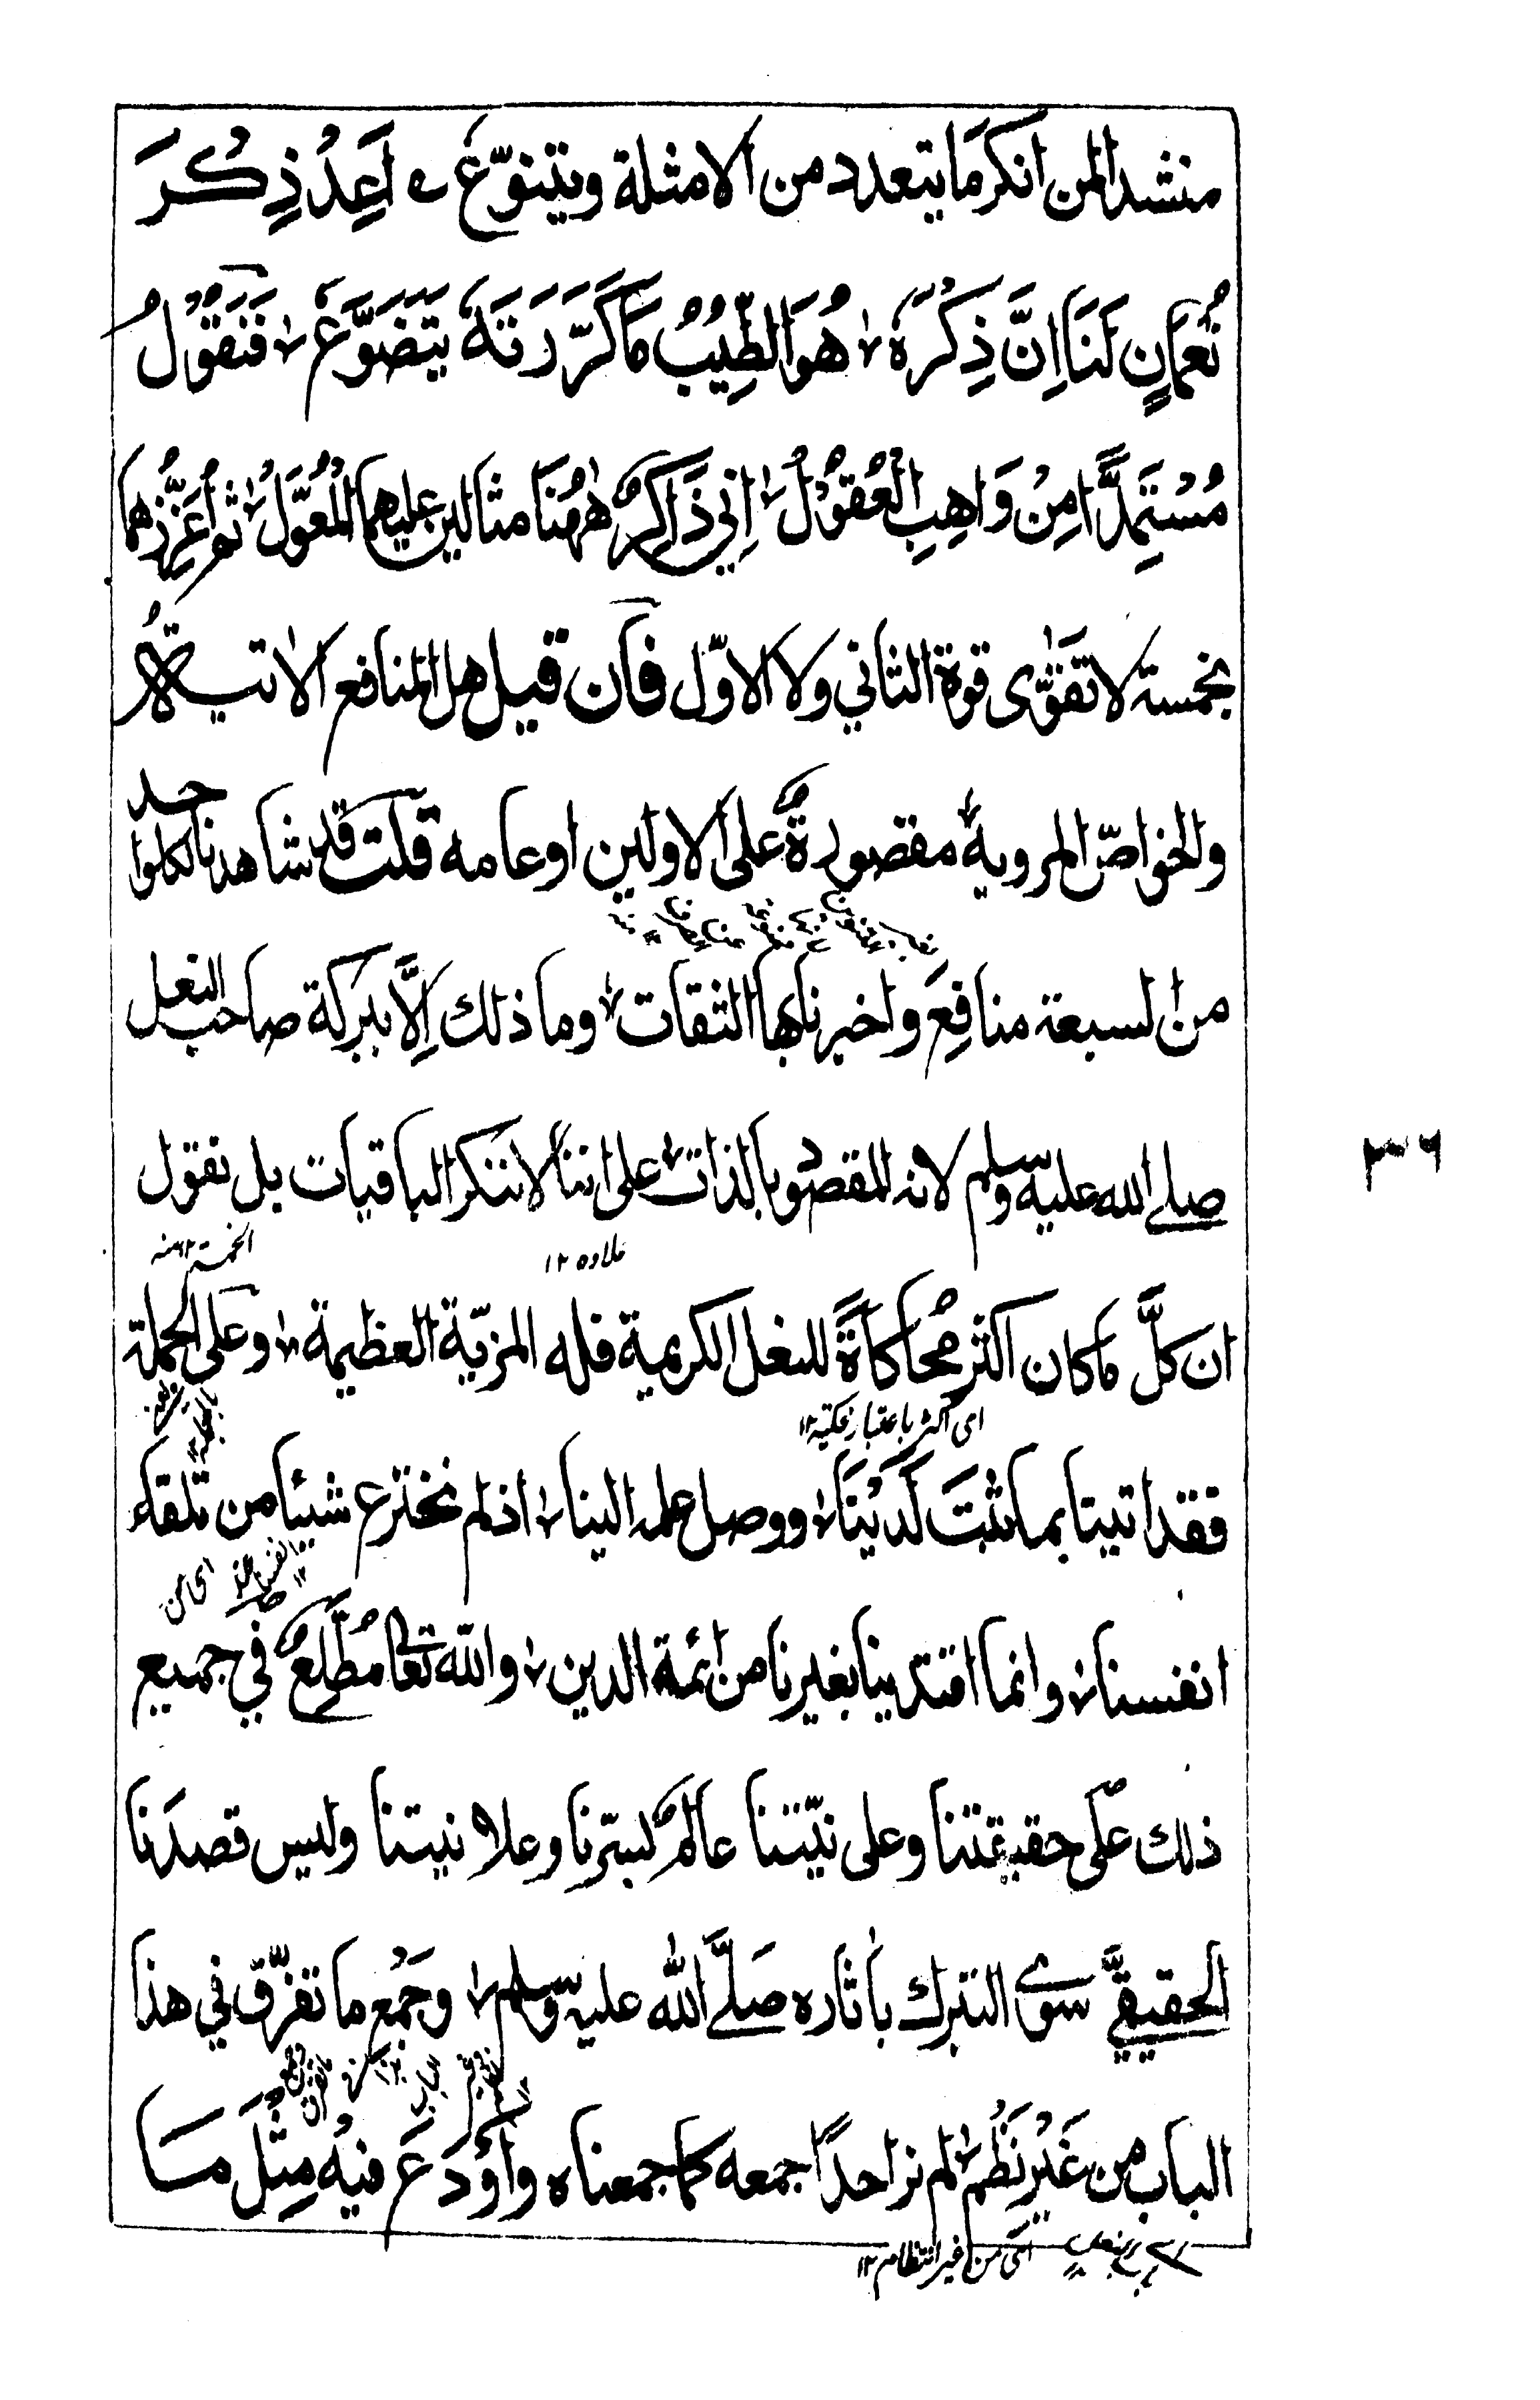 منشدا لمن انكر ما يتعدد من الامثلة ويتنوّع ؎ اَعِدْ ذِكْرَ
نُعْمَانٍ لَنَا اِنَّ ذِكْرَهٗ ٭ هُوَ الطِّيْبُ مَا كَرَّرْتَهٗ يَتَضَوَّعٗ ٭ فَنَقُوْلُ
مُسْتَمِدًّا مِنْ وَاهِبِ الْعُقُوْلِ ٭ اِنِّي ذَاكِرٌ هٰهُنَا مثالين عليهما الْمُعَوَّلُ ٭ ثم اُعَزِّزُهما
بخمسة لا تَقْوٰى قوة الثاني ولا الاوّل فَان قيل هل المنافع الاتيةُ
والخواصّ المروية مقصورةٌ على الاولين او عامه قلت قد شاهدنا لكل واحد
من السبعة منافِعَ واخبرنا بها الثقات ٭ وما ذلك اِلَّا ببركة صاحب النعل
صلى الله عليه وسلم لانه المقصود بالذات ٭ على اننا لا ننكر الباقيات بل نقول
الخمسة ١٢ منه
علاوه ١٢
ان كلَّ ما كان اكثر مُحاكاةً للنعل الكريمة فله المزيّة العظيمة ٭ وعلى الجملة
اى اكثر باعتبار
فقد اتينا بما ثبَتَ لَدَيْنَا ٭ ووصل علمه الينا ٭ اذ لم نخترع شيئا من تلقاء
اى من
انفسنا ٭ وانما اقتدينا بغيرنا من ائمة الدين ٭ والله تعالى مُطَّلِعٌ في جميع
ذلك على حقيقتنا وعلى نيّتنا عالمٌ لسرّنا وعلانيتنا وليس قصدَنا
الحقيقيَّ سوى التبرك باٰثاره صَلَّى الله عليه وسلم ٭ وجَمْع ما تفرّق في هذا
الباب من غَيْرِ نَظْمٍ ٭ لم نر احدًا جمعه كما جمعناه واَوْدَعَ فيه مِثْلَ مَا
اى من غير انتظام ١٢
٣٦